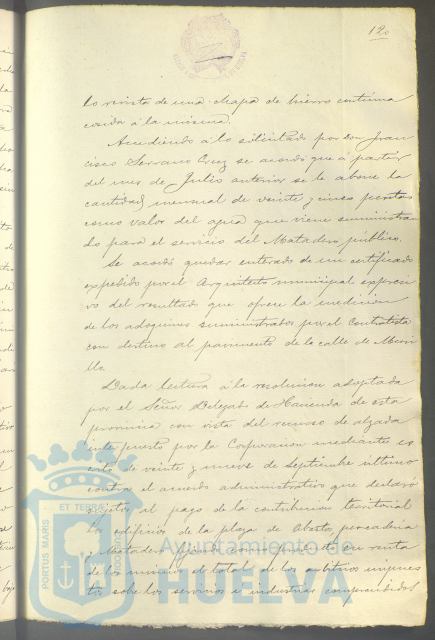 120
lo revista de una chapa de hierro continua
cosida á la misma.
Accediendo á lo solicitado por Don Fran
cisco Serrano Cruz se acordó que á partir
del mes de Julio anterior se le abone la
cantidad mensual de veinte y cinco pesetas
como valor del agua que viene suministran
do para el servicio del Matadero público.
Se acordó quedar enterado de un certificado
expedido por el Arquitecto municipal expresi
vo del resultado que ofrece la medicion
de los adoquines suministrados por el Contratista
con destino al pavimento de la calle de
Dada lectura á la resolucion adoptada
por el Señor Delegado de Hacienda de esta
provincia con vista del recurso de alzada
interpuesto por la Corporacion mediante es
crito de veinte y nueve de Septiembre último
contra el acuerdo administrativo que declaró
sujetos al pago de la contribucion territorial
los edificios de la plaza de Abastos, pescaderia
y Matadero, fijando como en renta
de los mismos el total de los arbitrios impues
tos sobre los servicios é industrias comprendidos
PORTUS MARIS ET TERRAE CUSTODIA
Ayuntamiento de
HUELVA